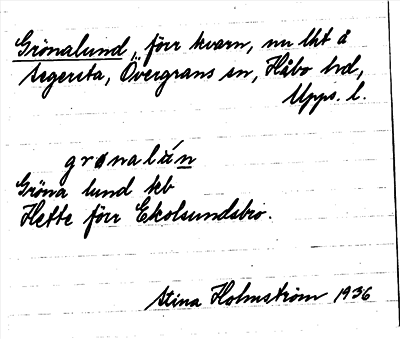 Grönalund, förr kvarn, nu lht å
Segersta, Övergrans sn, Håbo hd,
Upps. l.
grønalún
Gröna lund kb
Hette förr Ekolsundsbro.
Stina Holmström 1936